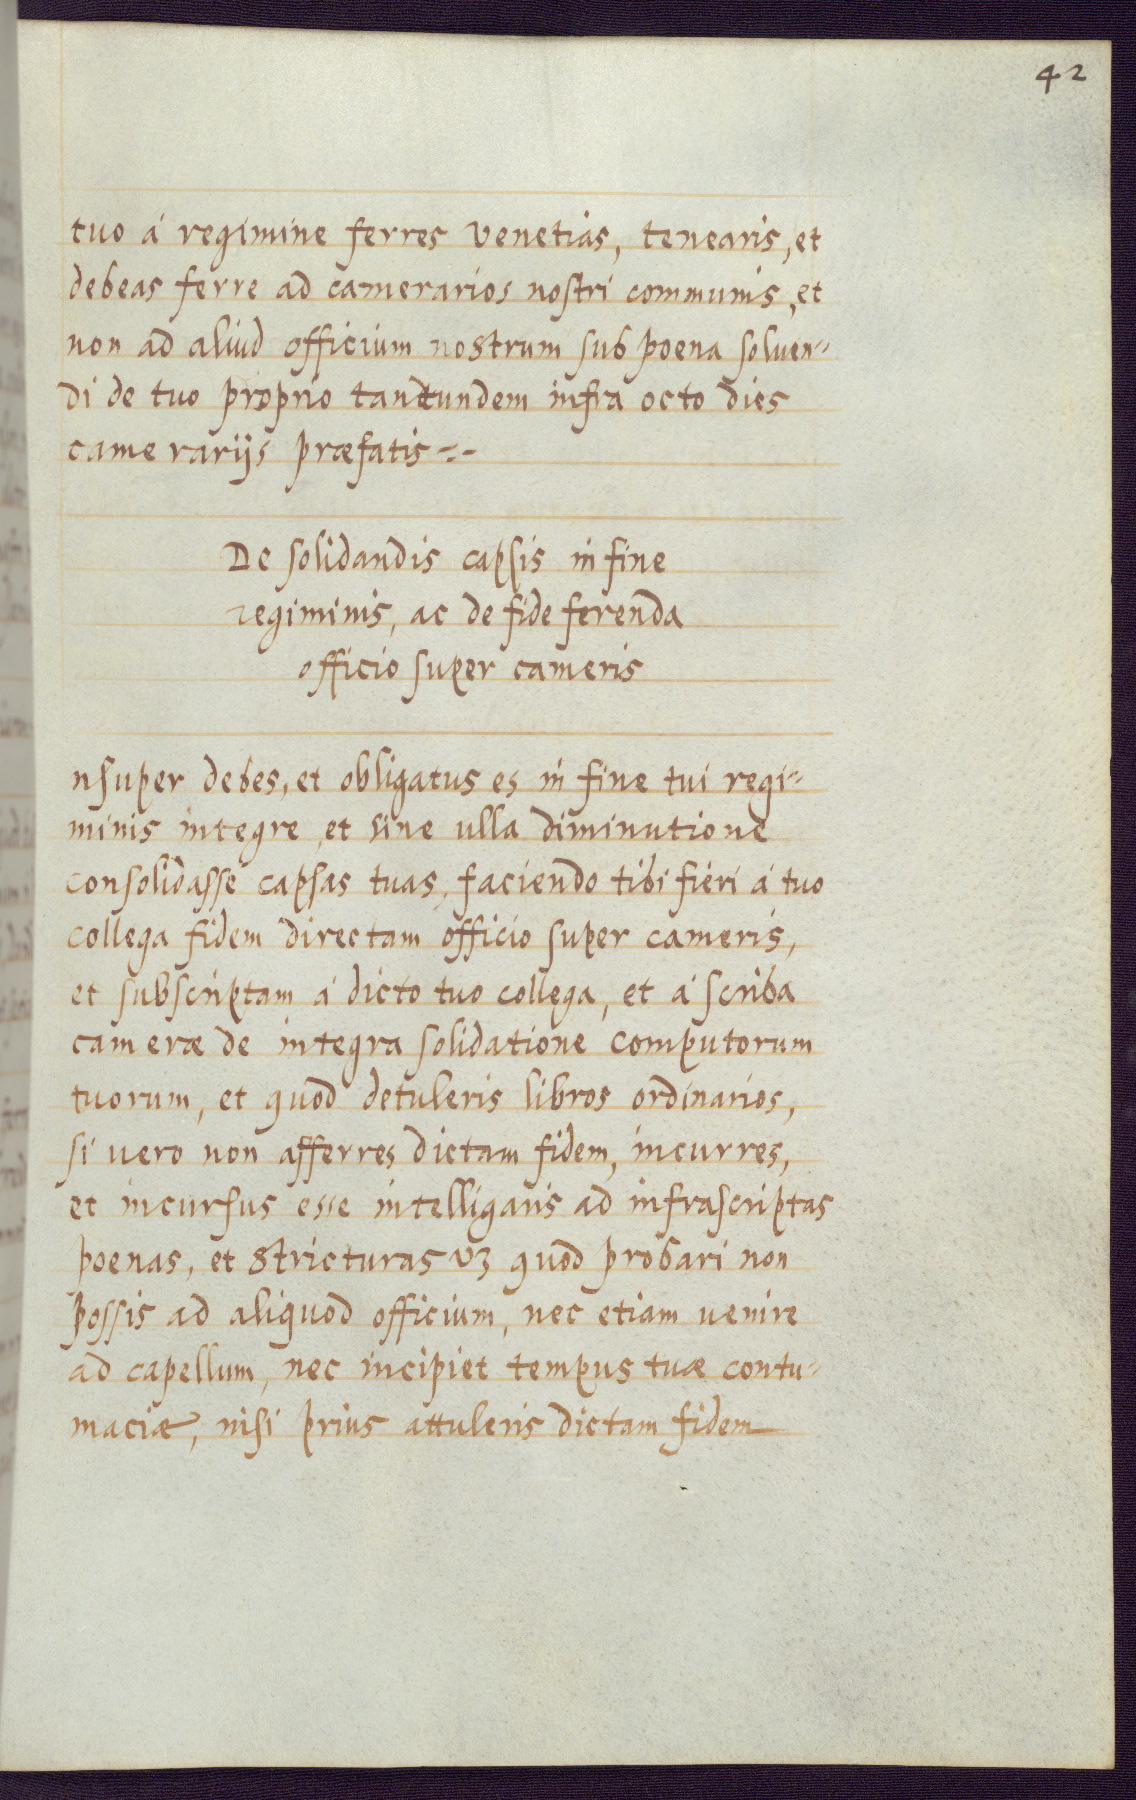 42
tuo á regimine ferres Venetias, tenearis, et
debeas ferre ad camerarios nostri communis, et
non ad aliud officium nostrum sub poena soluen-
di de tuo proprio tandtundem infra octo dies
camerarijs præfatis
De solidandis capsis in fine
regiminis, ac de fide ferenda
officio super cameris
nsuper debes, et obligatus es in fine tui regi-
minis integre, et sine ulla diminutione
consolidasse capsas tuas, faciendo tibi fieri á tuo
collega fidem directam officio super cameris,
et subscriptam á dicto tuo collega, et á scriba
cameræ de integra solidatione computorum
tuorum, et quod detuleris libros ordinarios,
si vero non afferres dictam fidem, incurres,
et incursus esse intelligaris ad infrascriptas
poenas, et stricturas vz quod probari non
possis ad aliquod officium, nec etiam uenire
ad capellum, nec incipiet tempus tuæ contu-
maciæ, nisi prius attuleris dictam fidem